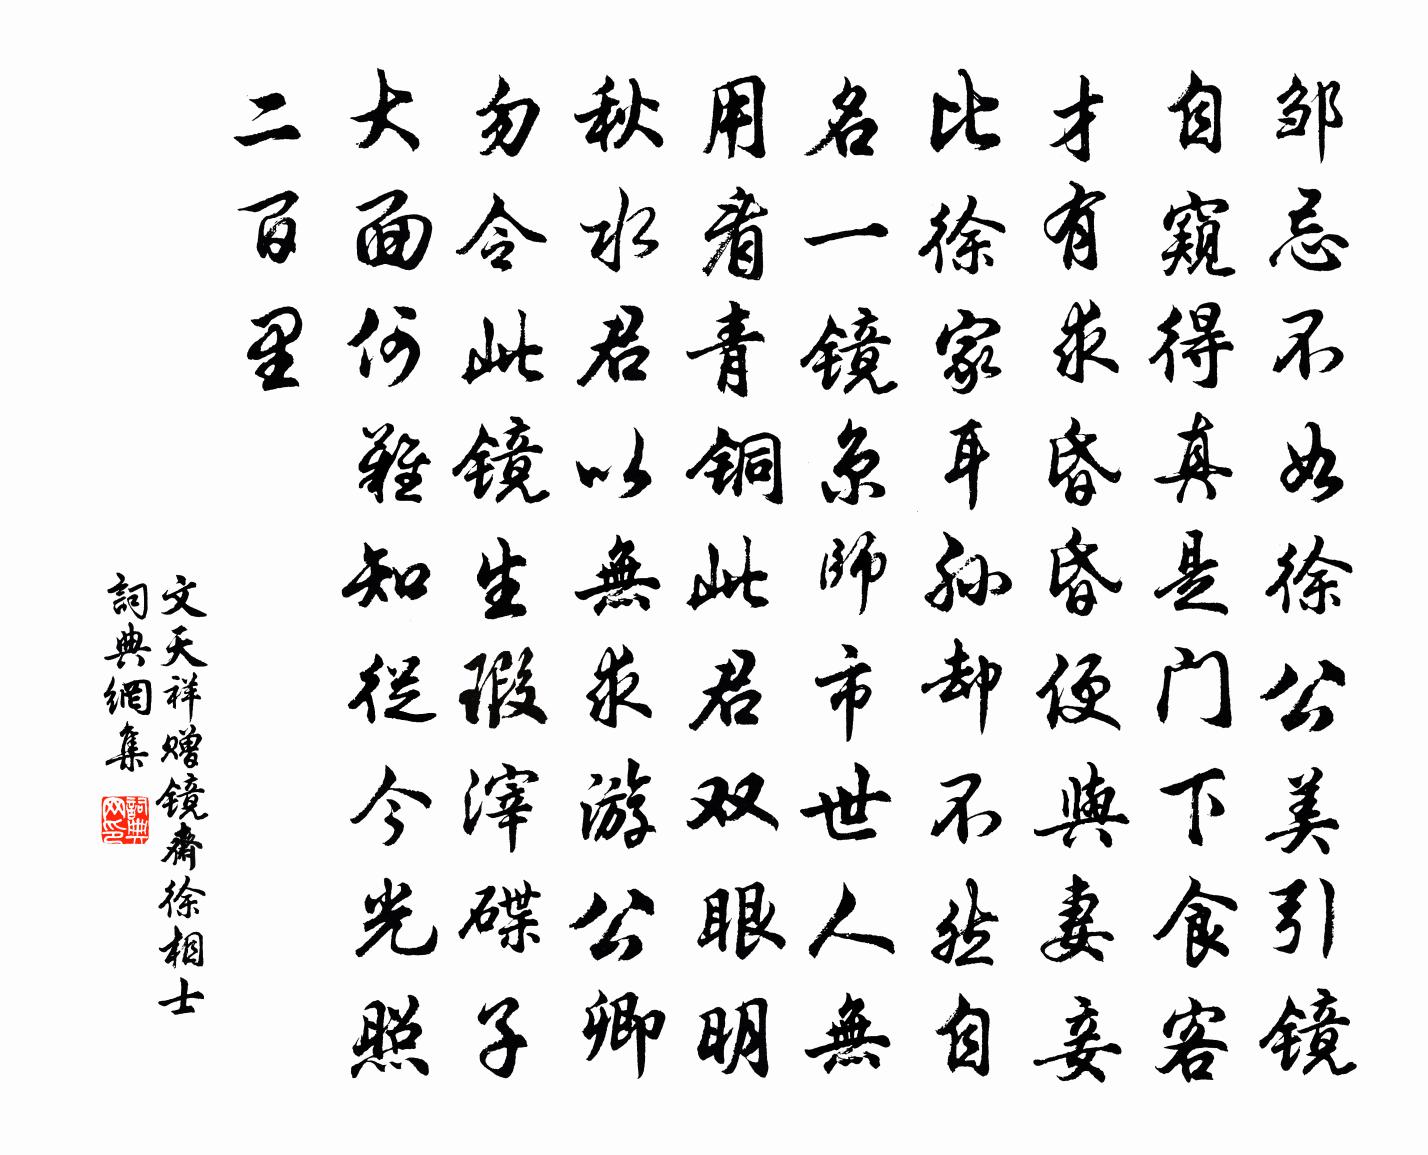 邹忌不如徐公美引镜
自窥得真是门下食客
才有求昏昏便與妻妾
比徐家耳孙却不然自
名一镜京師市世人無
用看青铜此君双眼明
秋水君以無求游公卿
勿令此镜生瑕滓碟子
大面何難知從今光照
二百里
文天祥赠镜斋徐相士
詞典網集
詞典网印